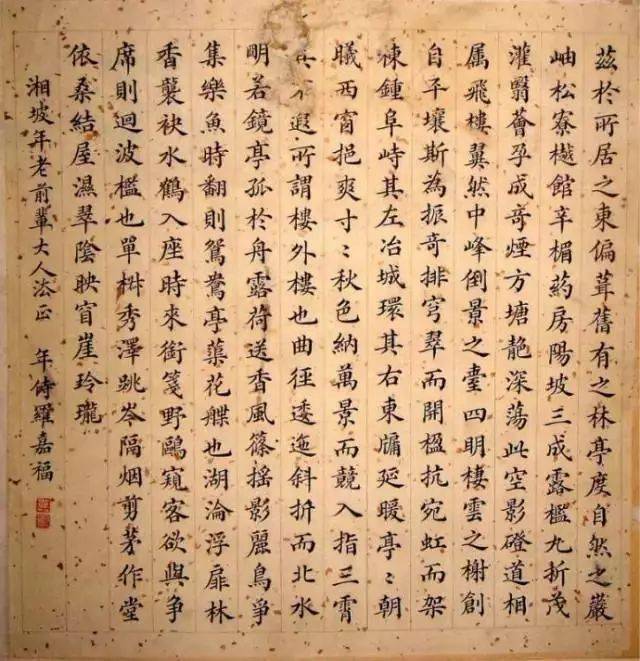 茲於所居之東偏葺舊有之林亭度自然之巖
岫松寮樾館辛楣葯房陽坡三成露檻九折茂
灌翳薈孕成奇煙方塘深蕩此空影磴道相
属飛樓翼然中峰倒景之臺四明棲雲之榭創
自平壤斯為振奇排穹翠而開楹抗宛虹而架
棟鍾阜峙其左冶城環其右東牖延暖亭〻朝
曦西窗挹爽寸〻秋色納萬景而競入指三霄
其不遐所謂樓外樓也曲徑逶迤斜折而北水
明若鏡亭孤於舟露荷送香風篠摇影麗鳥爭
集樂魚時翻則鴛鴦亭蕖花艓也湖淪浮扉林
香襲袂水鶴入座時來銜箋野鷗窺客欲與爭
席則迴波檻也單椒秀澤跳岑隔烟剪茅作堂
依桑結屋濕翠陰映窅崖玲瓏
湘坡年老前輩大人法正 年侍羅嘉福